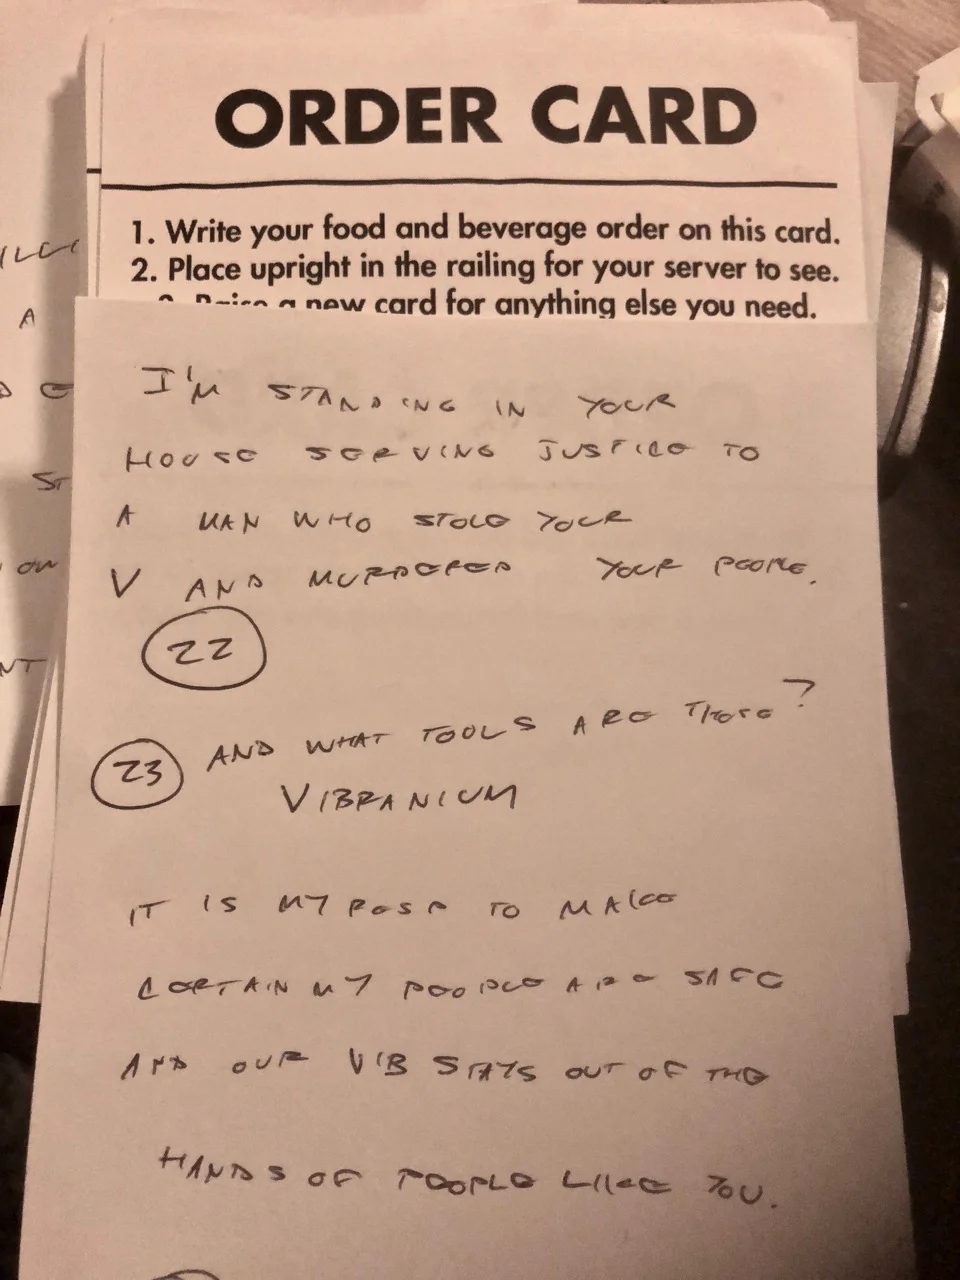 ORDER CARD
1. Write your food and beverage order on this card.
2. Place upright in the railing for your server to see.
3. Raise a new card for anything else you need.
I'M STANDING IN YOUR
HOUSE SERVING JUSTICE TO
A MAN WHO STOLE YOUR
V AND MURDERED YOUR PEOPLE.
22
23 AND WHAT TOOLS ARE THOSE?
VIBRANIUM
IT IS MY RESP TO MAKE
CERTAIN MY PEOPLE ARE SAFE
AND OUR VIB STAYS OUT OF THE
HANDS OF PEOPLE LIKE YOU.
A
ST
ON
NT